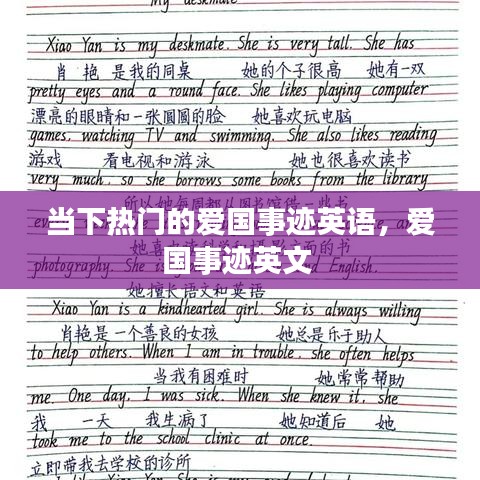 My deskmate
Xiao Yan is my deskmate. She is very tall. She has
肖 艳 是我的同桌 她的个子很高 她有一双
pretty eyes and a round face. She likes playing computer
漂亮的眼睛和一张圆圆的脸 她喜欢玩电脑
games, watching TV and swimming. She also likes reading
游戏 看电视和游泳 她也很喜欢读书
very much, so she borrows some books from the library
当下热门的爱国事迹英语，爱
国事迹英文
photography. English.
她擅长语文和英语
Xiao Yan is a kindhearted girl. She is always willing
肖艳是一个善良的女孩 她总是乐于助人
to help others. When I am in trouble, she often helps
当我有困难时 她常常帮助
me. One day, I was sick. When she knew it, she
我 一天 我生病了 她知道后 她
took me to the school clinic at once.
立即带我去学校的诊所